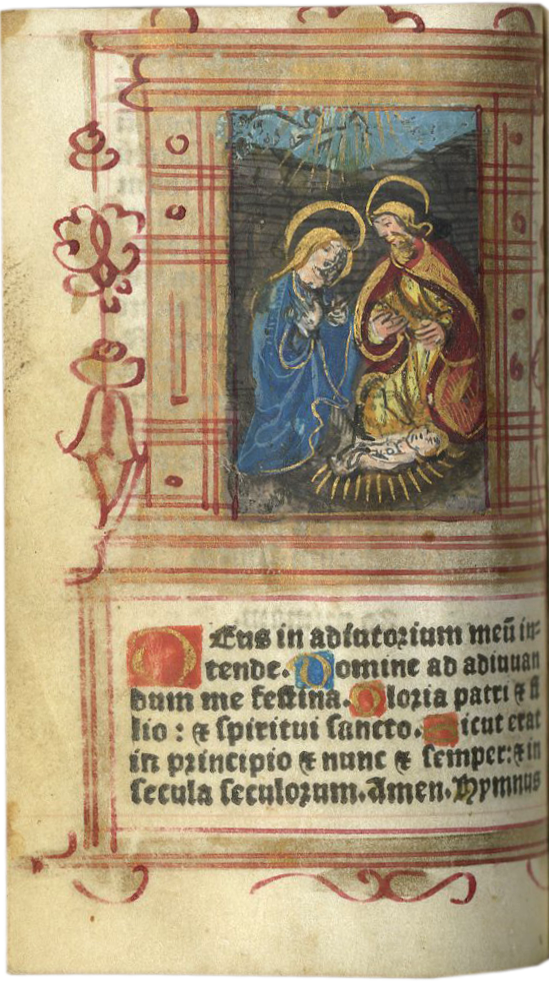 DEus in adiutorium meū in-
tende. Domine ad adiuuan
dum me festina. Gloria patri ⁊ fi
lio : ⁊ spiritui sancto. Sicut erat
in principio ⁊ nunc ⁊ semper: ⁊ in
secula seculorum. Amen. Hymnus